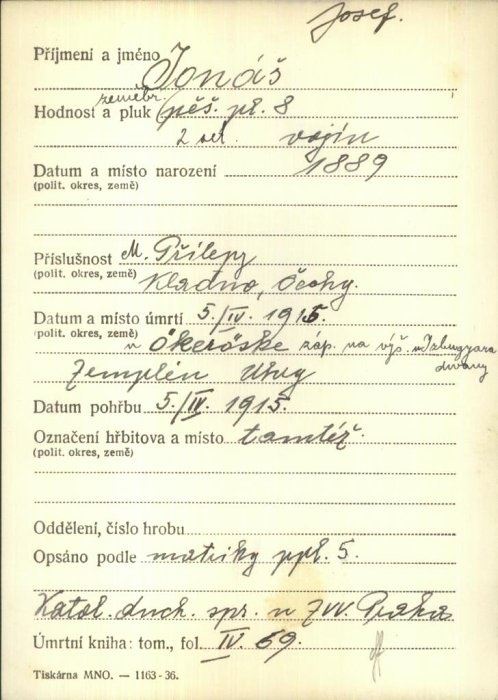 Josef.
Příjmení a jméno Jonáš
zeměbr.
Hodnost a pluk pěš. pl. 8
2 set. vojín
Datum a místo narození 1889
(polit. okres, země)
Příslušnost M. Přílepy
(polit. okres, země) Kladno, Čechy.
Datum a místo úmrtí 5./IV. 1915.
(polit. okres, země) u Ökeröske záp. na výš. u
Zemplén Uhry
Datum pohřbu 5./IV. 1915.
Označení hřbitova a místo tamtéž.
(polit. okres, země)
Oddělení, číslo hrobu
Opsáno podle matriky ppl. 5.
Katol. duch. spr. u ZVV. Praha
Úmrtní kniha: tom., fol. IV. 69.
Tiskárna MNO. — 1163-36.